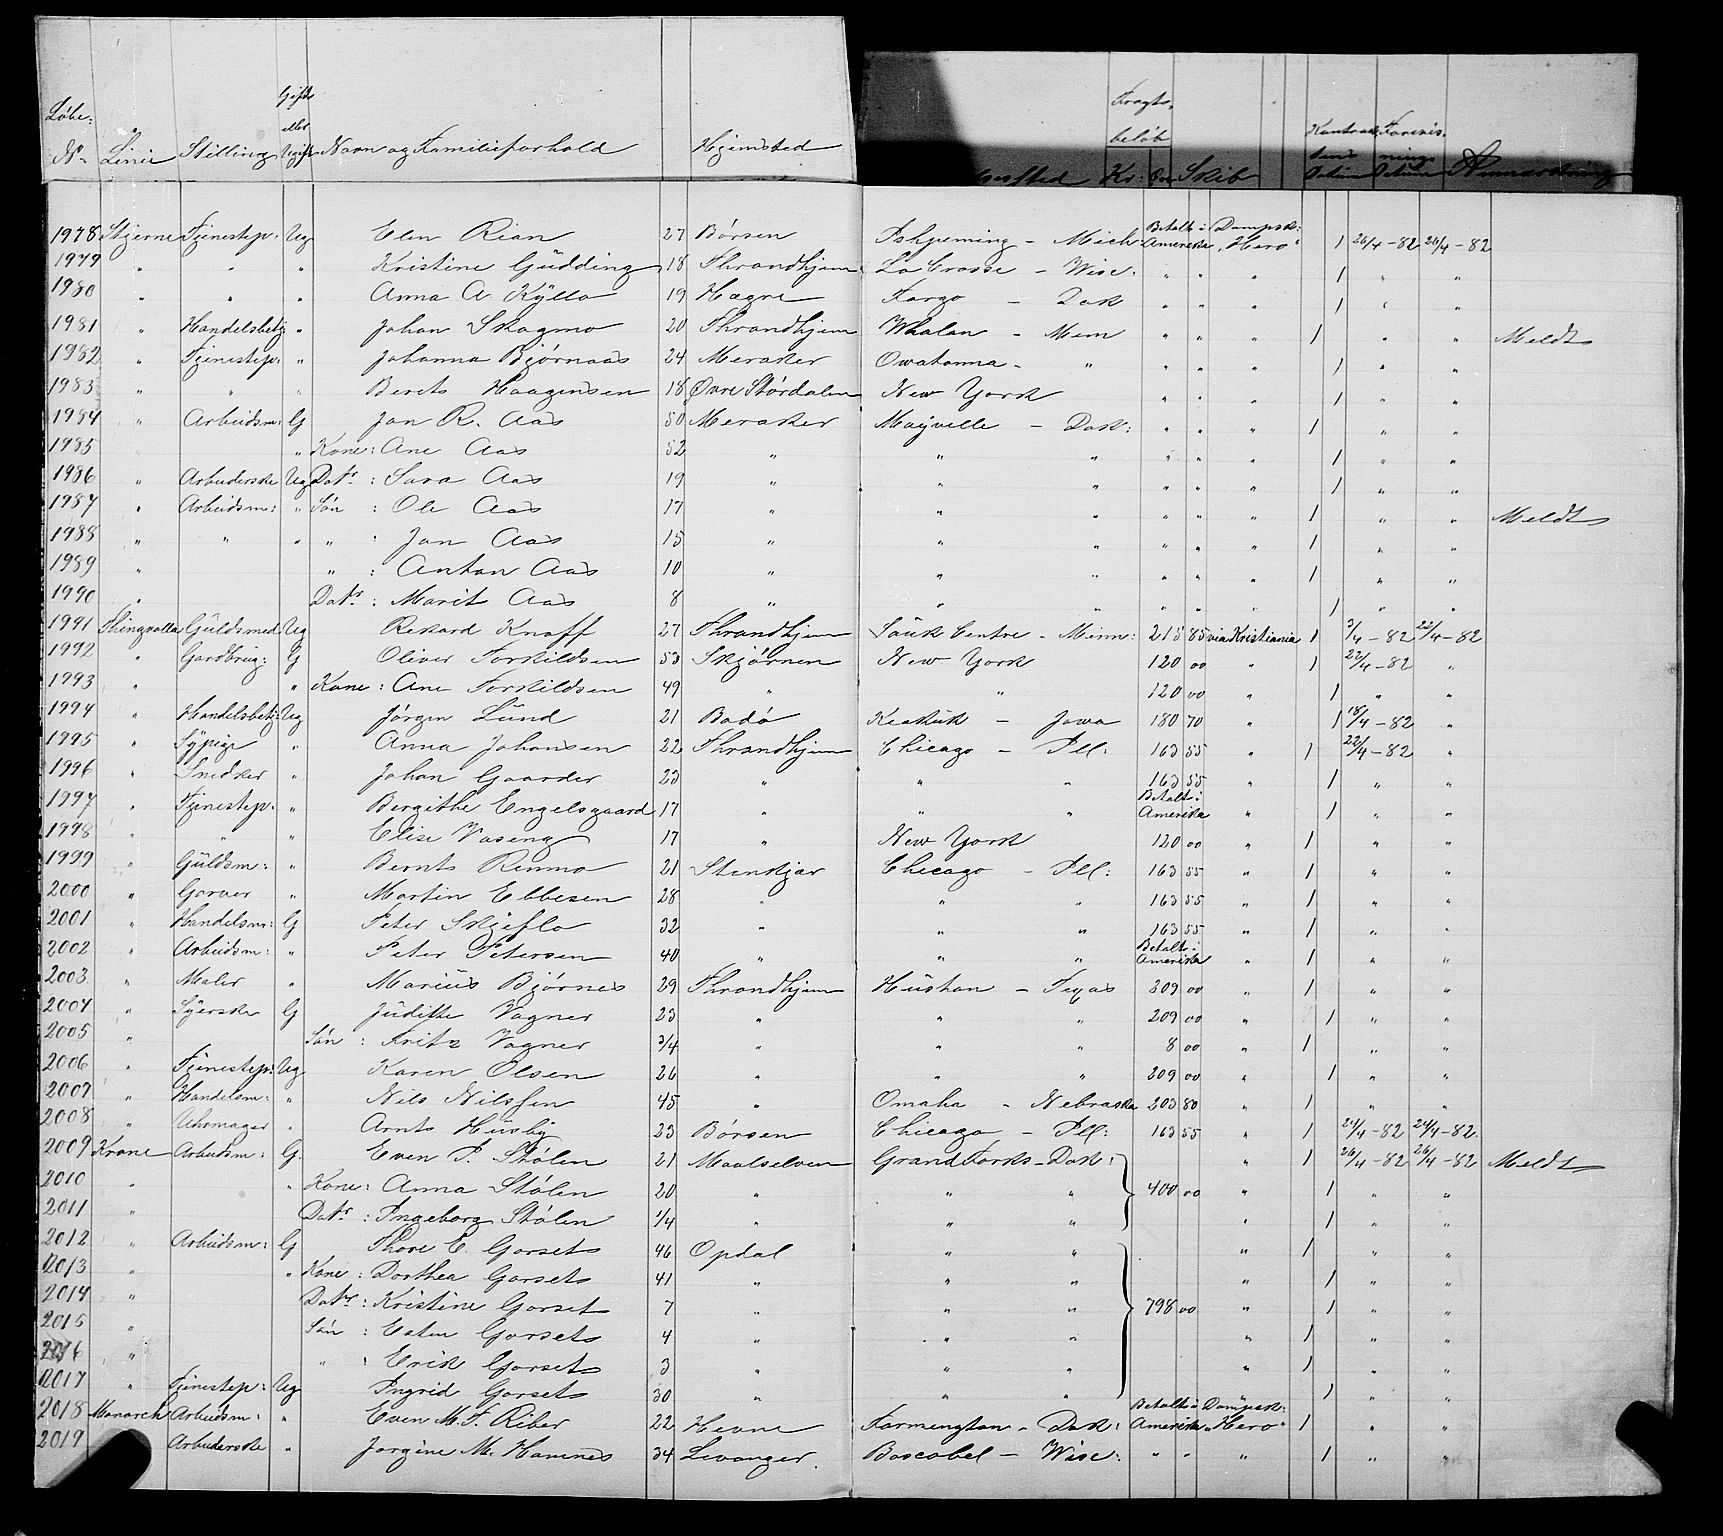 Løbe-
No. Linie Stilling Gift eller Ugift Navn og Familieforhold Hjemsted Fragtbeløb Kr: Øre Skib
1978 Stjerne Tjenestep: Ug Elen Rian 27 Børsen Ishpeming - Mich Betalt i Amerika Dampsk: „Hero" 1 26/4-82 26/4-82
1979 " " " Kristine Gudding 18 Thrandhjem La Crosse - Wisc: " " " 1 " "
1980 " " " Anna A. Kyllo 19 Hegre Fargo - Dak " " " 1 " "
1981 " Handelsbetj " Johan Skogmo 20 Thrandhjem Whalan - Menn " " " 1 " " Meldt
1982 " Tjenestep: " Johanna Bjørnaas 24 Meraker Owatonna - " " " " 1 " "
1983 " " " Berets Haagensen 18 Øvre Størdalen New York " " " 1 " "
1984 " Arbeidsm: G Jon R. Aas 50 Meraker Mayville - Dak: " " " 1 " "
1985 " Kone: Ane Aas 52 " " " " " " 1 " "
1986 " Arbeiderske Ug Datr: Sara Aas 19 " " " " " " 1 " "
1987 " Arbeidsm: " Søn : Ole Aas 17 " " " " " " 1 " " Meldt
1988 " " " " : Jon Aas 15 " " " " " " 1 " "
1989 " " : Anton Aas 10 " " " " " " 1 " "
1990 " Datr: Marit Aas 8 " " " " " " 1 " "
1991 Thingvalla Guldsmed Ug Rekard Knoff 27 Thrandhjem Sauk Centre - Minn: 215 85 via Kristiania 1 3/4-82 22/4-82
1992 " Gardbrug: G Oliver Torkildsen 53 Skjørnen New York 120 00 " 1 22/4-82 "
1993 " " Kone: Ane Torkildsen 49 " " 120 00 " 1 " "
1994 " Handelsbetj: Ug Jørgen Lund 21 Bodø Keokuk - Jowa 180 70 " 1 18/4-82 "
1995 " Sypige " Anna Johansen 22 Thrandhjem Chicago - Ill: 163 55 " 1 22/4-82 "
1996 " Snedker " Johan Gaarder 23 " " " 163 55 " 1 " "
1997 " Tjenestep: " Bergithe Engelsgaard 17 " " " Betalt i Amerika " 1 " "
1998 " " " Elise Vaseng 17 " New York 120 00 " 1 " "
1999 " Guldsm: " Bernt Rinna 21 Stenkjær Chicago - Ill: 163 55 " 1 " "
2000 " Garver " Martin Ebbesen 28 " " " 163 55 " 1 " "
2001 " Handelsm: G Peter Skjeflo 32 " " " 163 55 " 1 " "
2002 " Arbeidsm: " Peter Petersen 40 " " " Betalt i Amerika " 1 " "
2003 " Maler " Marius Bjørnes 29 Thrandhjem Hustan - Texas 209 00 " 1 " "
2004 " Syerske G Judithe Vagner 23 " " " 209 00 " 1 " "
2005 " Søn : Fritz Vagner 3/4 " " " 8 00 " 1 " "
2006 " Tjenestep: Ug Karen Olsen 26 " " " 209 00 " 1 " "
2007 " Handelsm: " Nils Nilssen 45 " Omaha - Nebraska 203 80 " 1 " "
2008 " Uhrmager " Arnt Husby 23 Børsen Chicago - Ill: 163 55 " 1 24/4-82 24/4-82
2009 Krone Arbeidsm: G. Even P. Stølen 21 Maalselven Grand Forks - Dak: " 1 26/4-82 26/4-82 Meldt
2010 " " Kone: Anna Stølen 20 " " " 400 00 " 1 " "
2011 " Datr: Ingeborg Stølen 1/4 " " " " 1 " "
2012 " Arbeidsm: G Thore E. Gorset 46 Opdal " " " 1 " "
2013 " " Kone: Dorthea Gorset 41 " " " " 1 " "
2014 " Datr: Kristine Gorset 7 " " " 798 00 " 1 " "
2015 " Søn : Esten Gorset 4 " " " " 1 " "
2016 " " : Erik Gorset 3 " " " " 1 " "
2017 Tjenestep: Ug Ingrid Gorset 30 " " " 1 " "
2018 Monarch Arbeidsm: " Even M. F. Riber 22 Hevne Farmington - Dak: Betalt i Amerika Dampsk: „Hero" 1 " "
2019 Arbeiderske " Jorgine M. Hamnes 34 Levanger. Boscobel - Wisc: " " " 1 " "